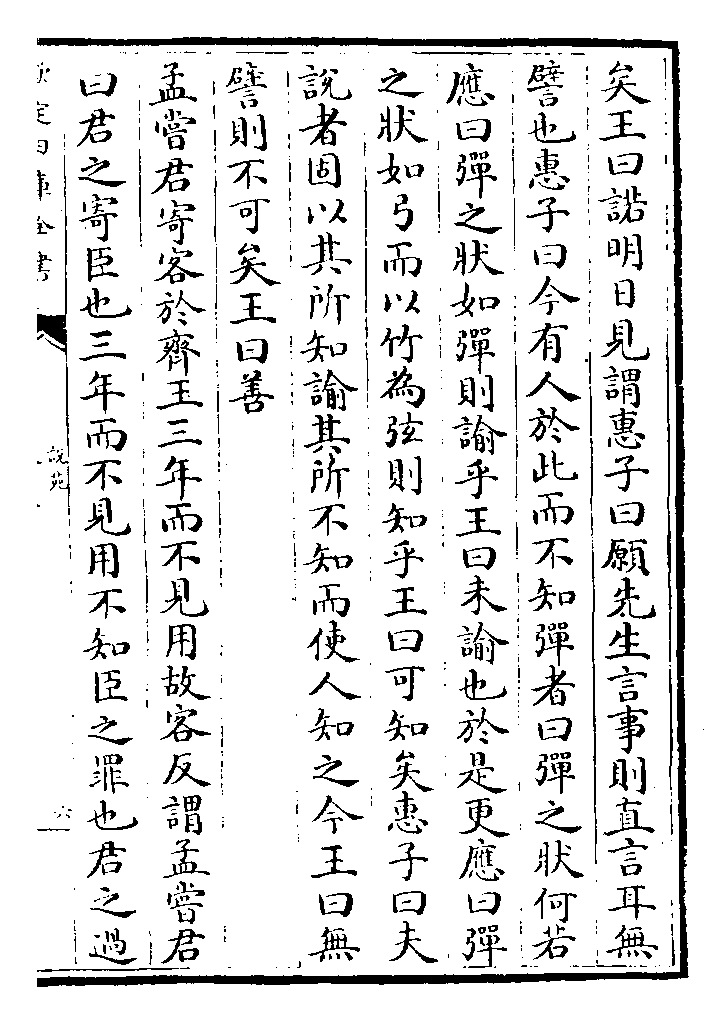 矣王曰諾明日見謂惠子曰願先生言事則直言耳無
譬也惠子曰今有人於此而不知彈者曰彈之狀何若
應曰彈之狀如彈則諭乎王曰未諭也於是更應曰彈
之狀如弓而以竹為弦則知乎王曰可知矣惠子曰夫
說者固以其所知諭其所不知而使人知之今王曰無
譬則不可矣王曰善
孟嘗君寄客於齊王三年而不見用故客反謂孟嘗君
曰君之寄臣也三年而不見用不知臣之罪也君之過
欽定四庫全書
說苑
六